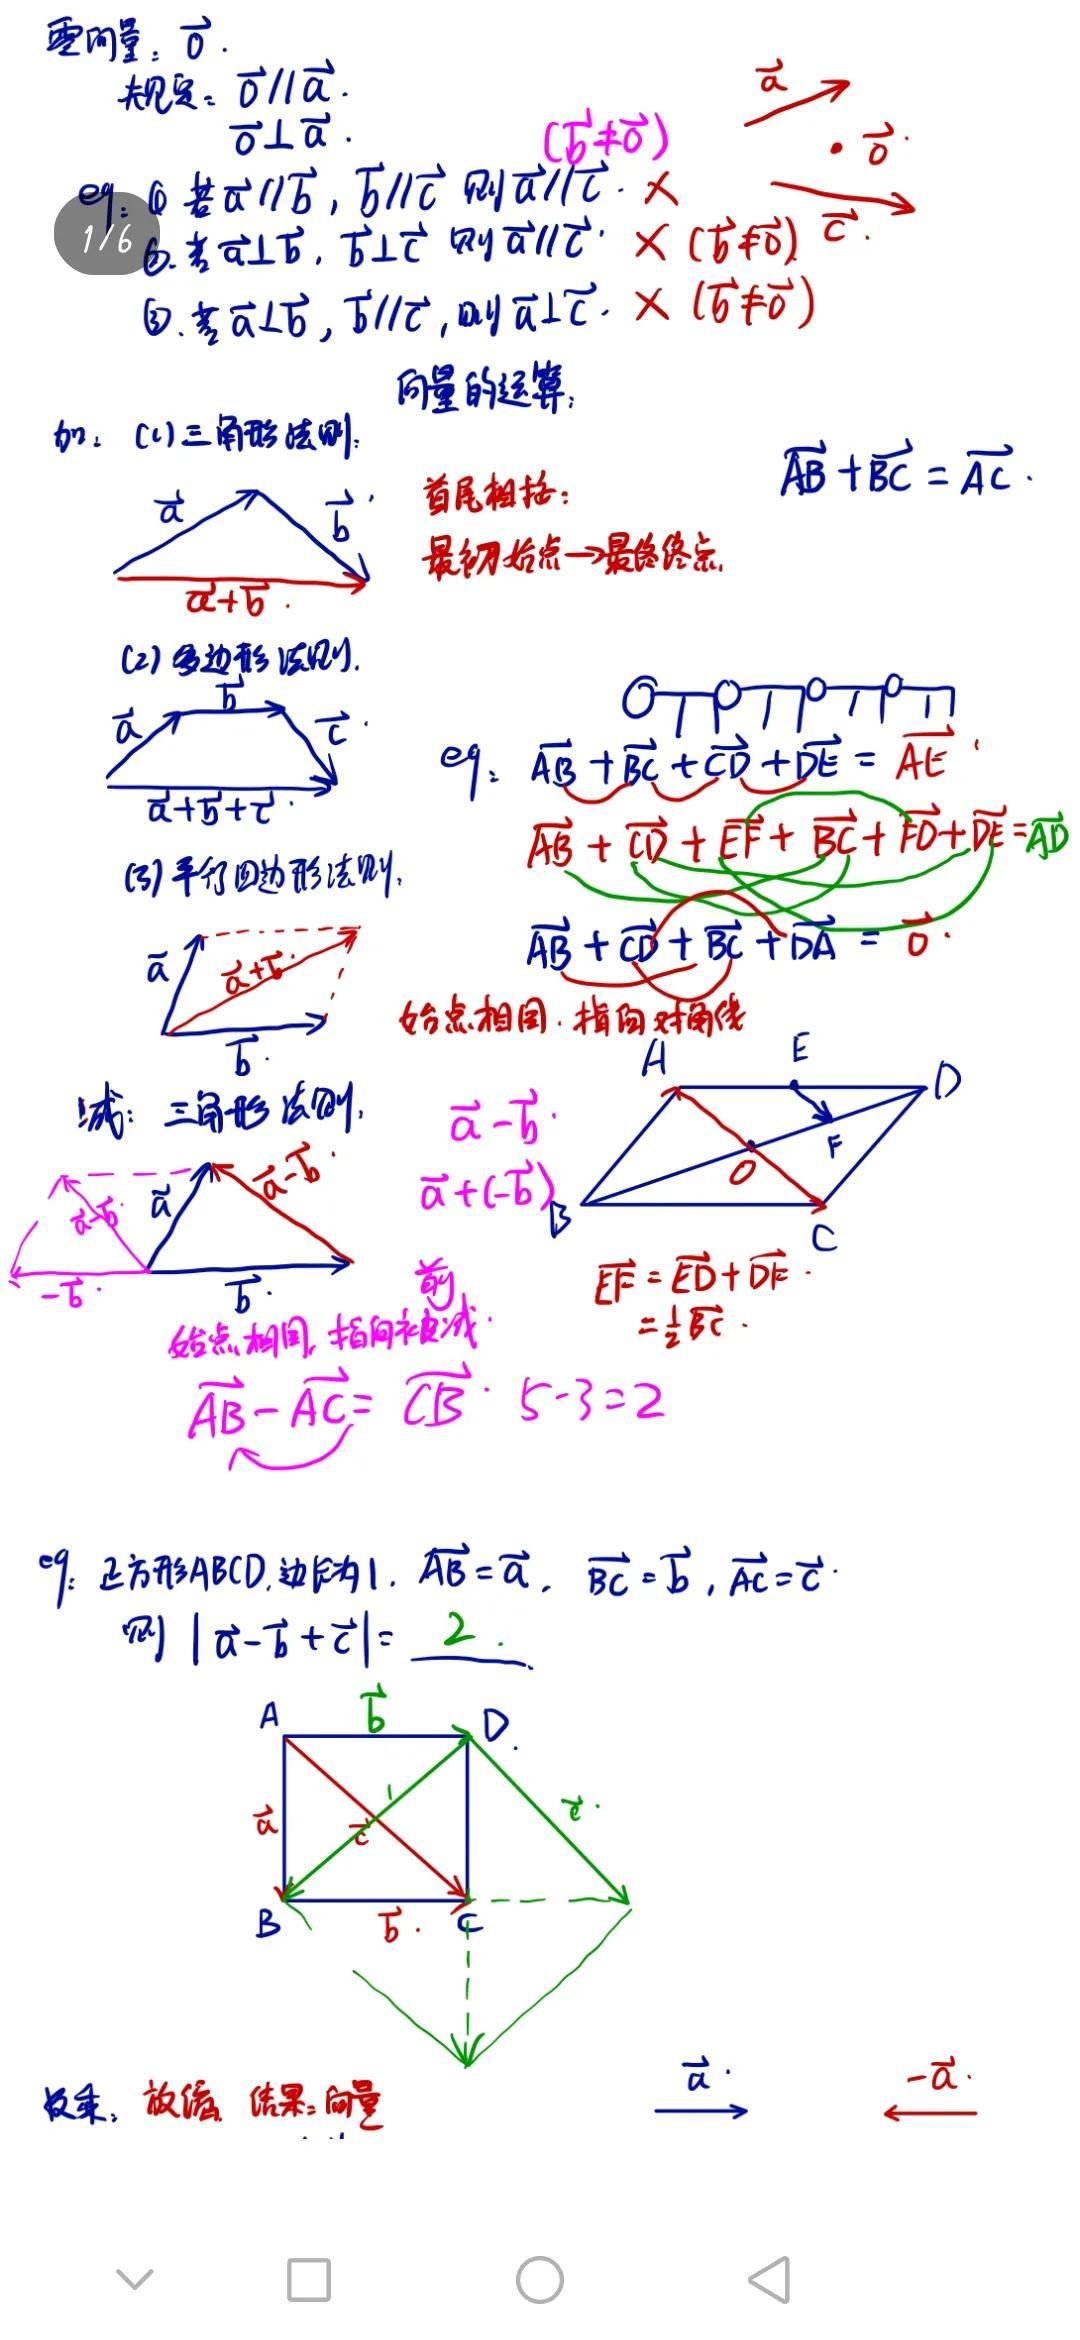 零向量: 0⃗.
规定: 0⃗ // a⃗.
0⃗ ⊥ a⃗.
a⃗
0⃗
c⃗.
(b⃗ ≠ 0⃗)
eg: ① 若 a⃗ // b⃗, b⃗ // c⃗ 则 a⃗ // c⃗. ×
1/6
②. 若 a⃗ ⊥ b⃗, b⃗ ⊥ c⃗ 则 a⃗ // c⃗. × (b⃗ ≠ 0⃗)
③. 若 a⃗ ⊥ b⃗, b⃗ // c⃗, 则 a⃗ ⊥ c⃗. × (b⃗ ≠ 0⃗)
向量的运算:
加: (1) 三角形法则:
AB⃗ + BC⃗ = AC⃗.
首尾相接:
最初始点→最终终点.
a⃗
b⃗
a⃗+b⃗.
(2) 多边形法则.
a⃗
b⃗
c⃗
a⃗+b⃗+c⃗.
eg: AB⃗ + BC⃗ + CD⃗ + DE⃗ = AE⃗
AB⃗ + CD⃗ + EF⃗ + BC⃗ + FD⃗ + DE⃗ = AD⃗
AB⃗ + CD⃗ + BC⃗ + DA⃗ = 0⃗.
(3) 平行四边形法则.
a⃗
a⃗+b⃗.
b⃗.
始点相同. 指向对角线
减: 三角形法则.
a⃗-b⃗.
a⃗+(-b⃗)
a⃗-b⃗
a⃗
a⃗-b⃗
-b⃗.
b⃗.
A
E
D
F
O
B
C
EF⃗ = ED⃗ + DF⃗.
= ½ BC⃗.
前
始点相同, 指向被减.
AB⃗ - AC⃗ = CB⃗. 5-3=2
eg: 正方形ABCD, 边长为1. AB⃗ = a⃗, BC⃗ = b⃗, AC⃗ = c⃗.
则 |a⃗-b⃗+c⃗| = 2.
A
b⃗
D
a⃗
c⃗
c⃗.
B
b⃗.
C
数乘: 放缩 结果: 向量
a⃗.
-a⃗.